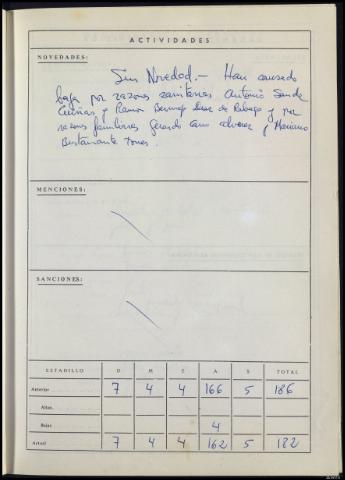 ACTIVIDADES
NOVEDADES:
Sin Novedad.- Han causado
baja por razones sanitarias Antonio Sande
y Ramon Bermejo de Rabago y por
razones familiares Gerardo Cano Alvarez y Mariano
Bustamante Torres.
MENCIONES:
SANCIONES:
ESTADILLO D M E A S TOTAL
Anterior 7 4 4 166 5 186
Altas
Bajas 4
Actual 7 4 4 162 5 182